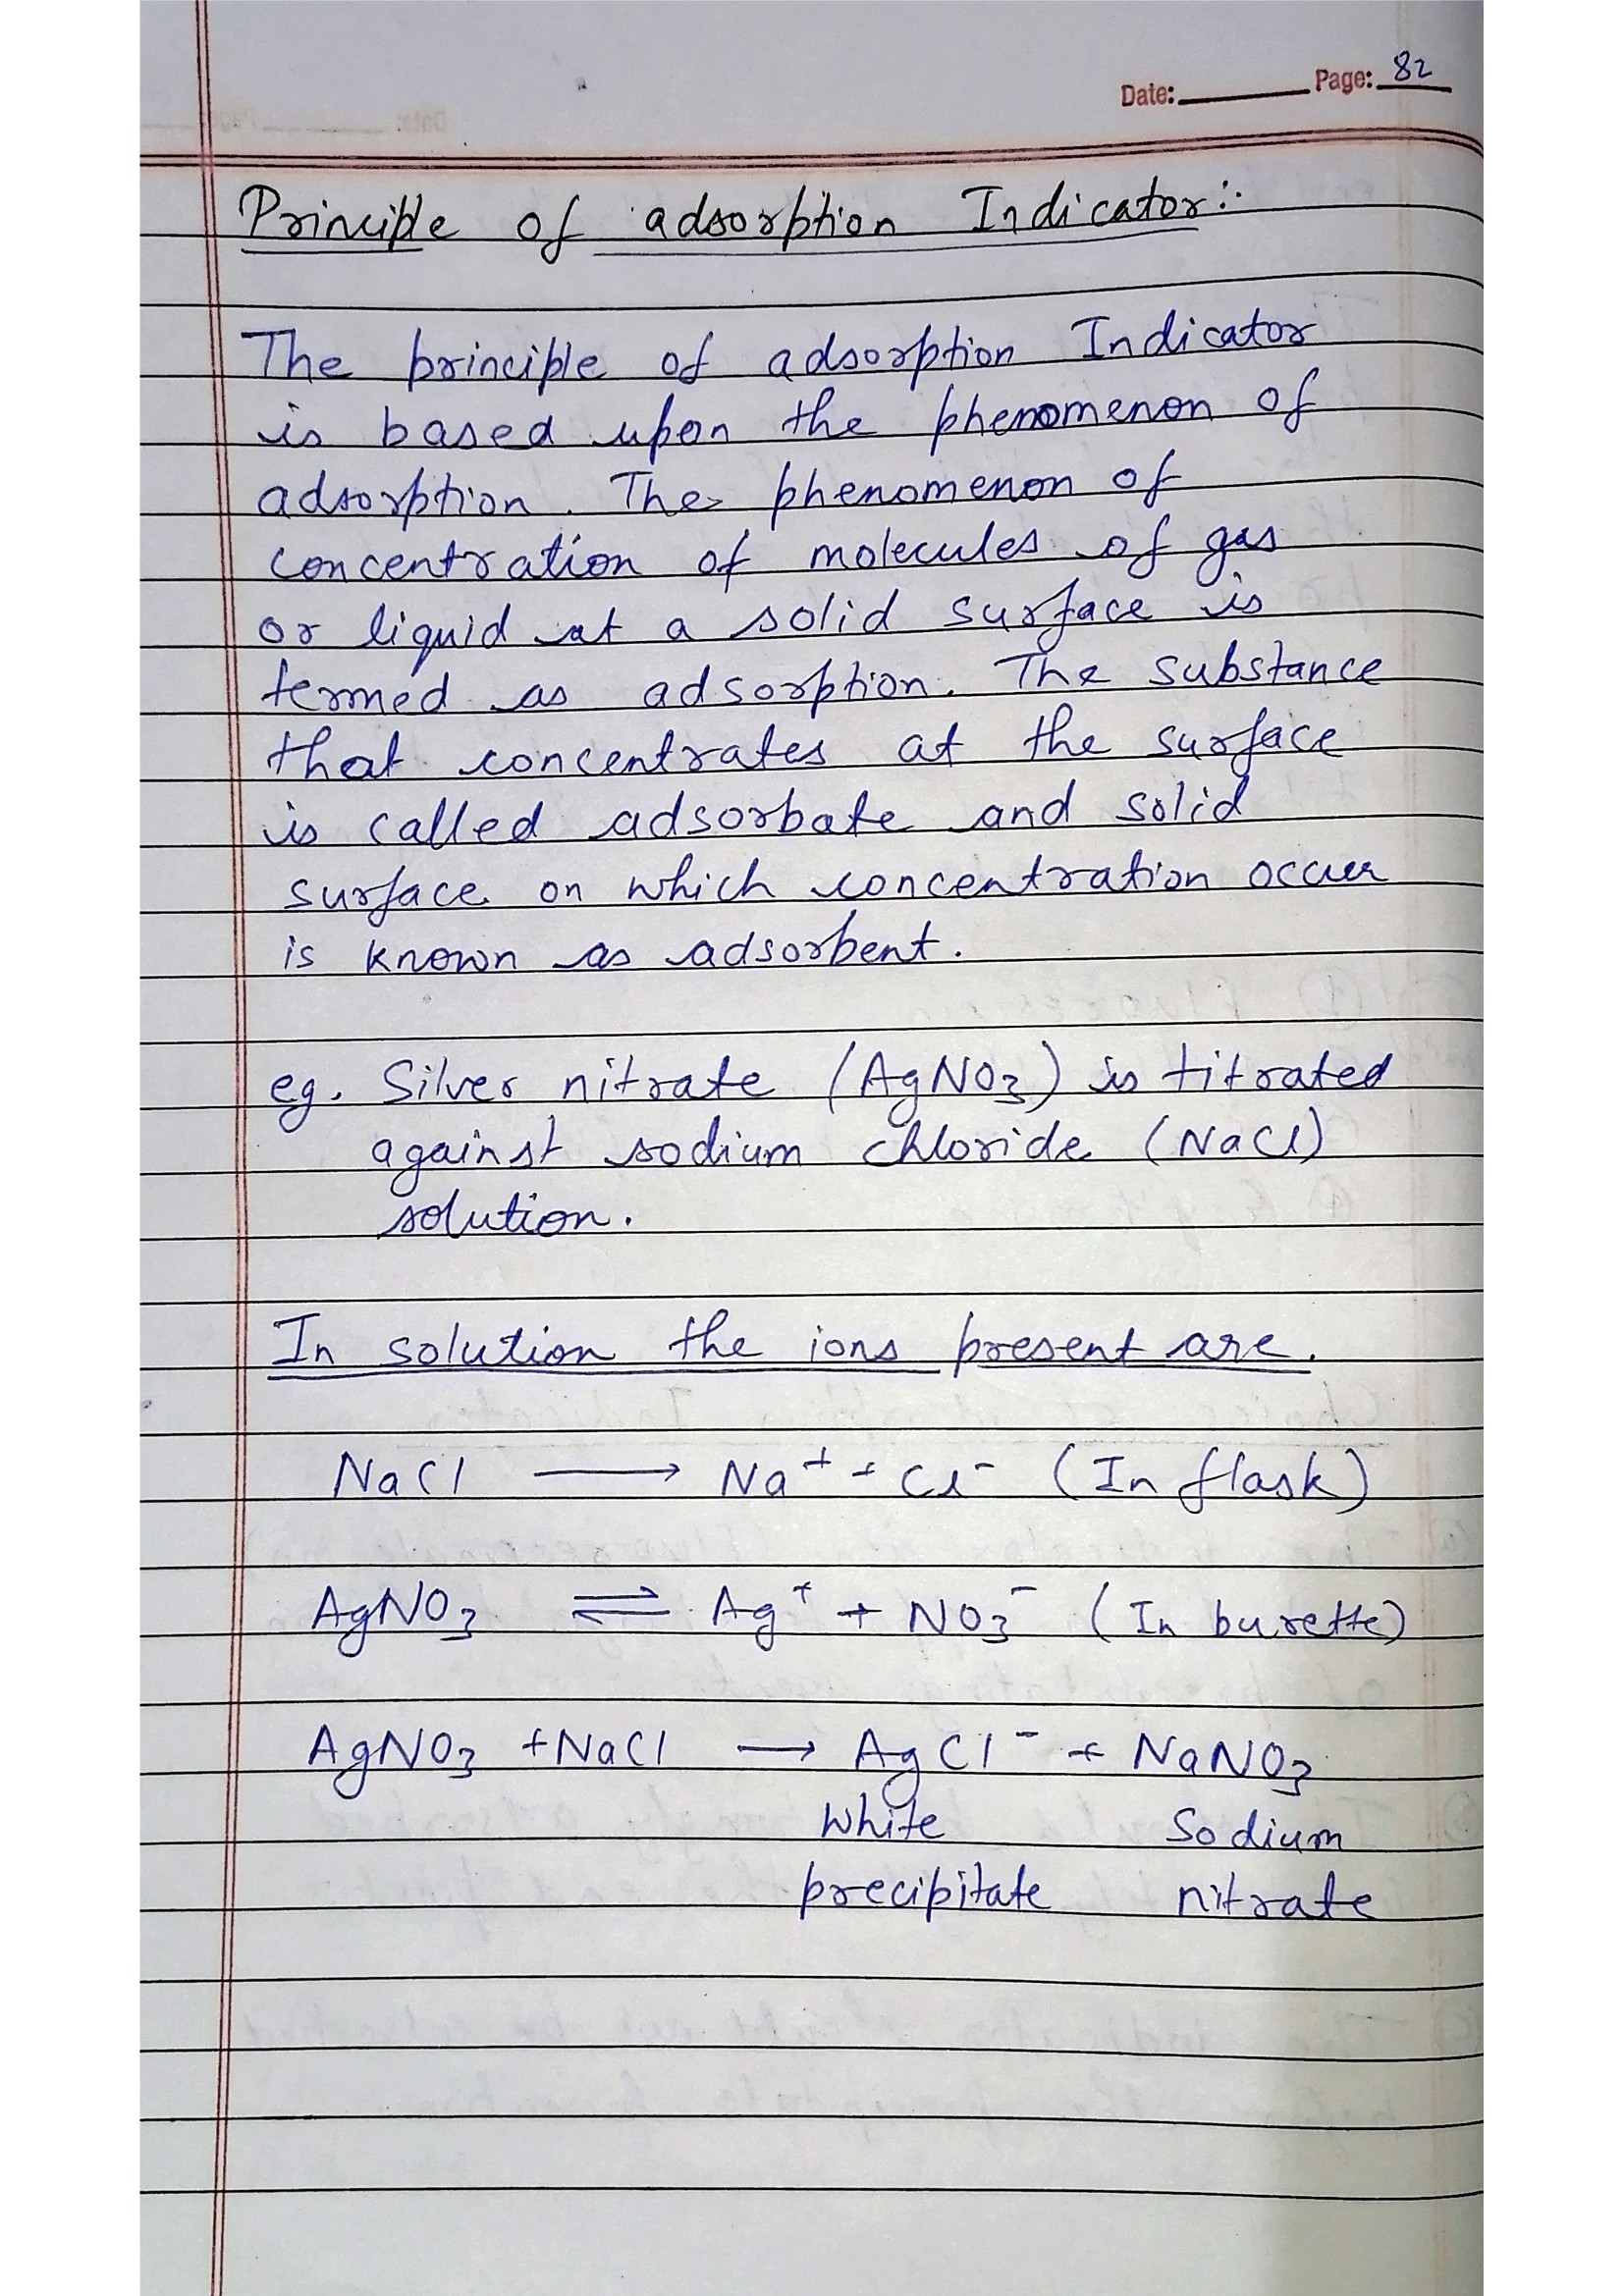 Date: Page: 82
Principle of adsorption Indicator :-
The principle of adsorption Indicator
is based upon the phenomenon of
adsorption. The phenomenon of
concentration of molecules of gas
or liquid at a solid surface is
termed as adsorption. The substance
that concentrates at the surface
is called adsorbate and solid
surface on which concentration occur
is known as adsorbent.
eg. Silver nitrate (AgNO₃) is titrated
against sodium chloride (NaCl)
solution.
In solution the ions present are.
NaCl ⟶ Na⁺ + Cl⁻ (In flask)
AgNO₃ ⇌ Ag⁺ + NO₃⁻ (In burette)
AgNO₃ + NaCl ⟶ AgCl⁻ + NaNO₃
White Sodium
precipitate nitrate